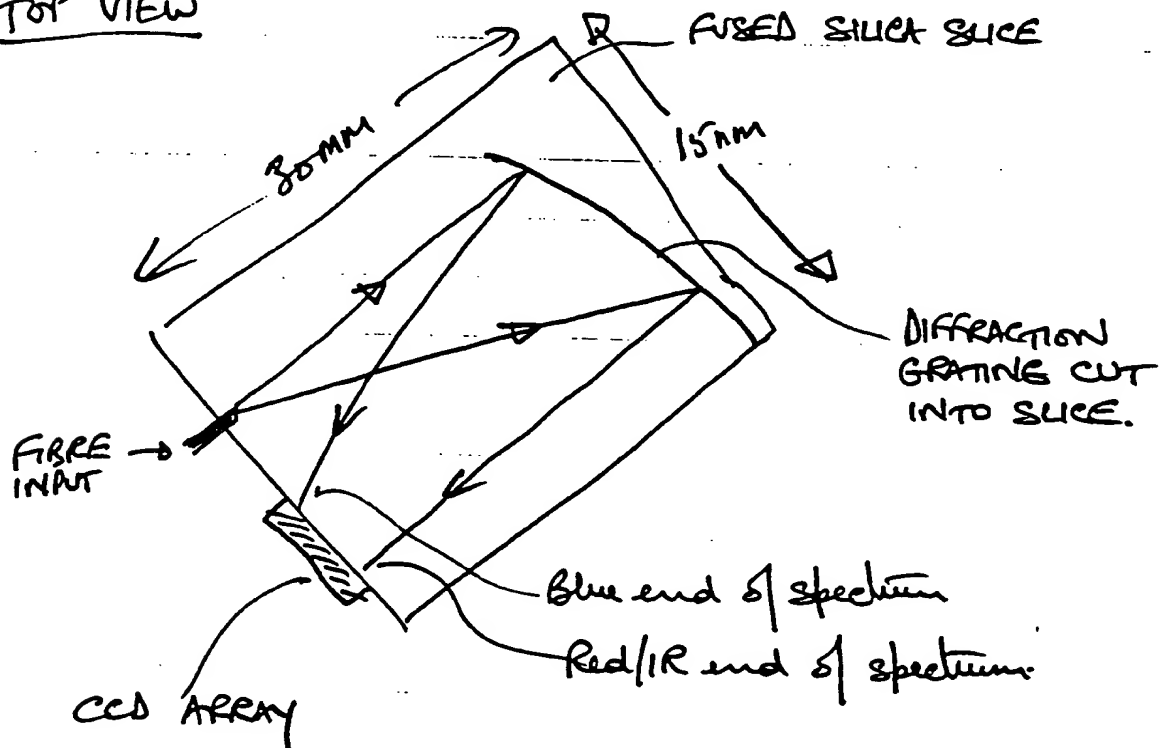 TOP VIEW
FUSED SILICA SLICE
30MM
15MM
DIFFRACTION
GRATING CUT
INTO SLICE.
FIBRE
INPUT
Blue end of spectrum
Red/IR end of spectrum.
CCD ARRAY